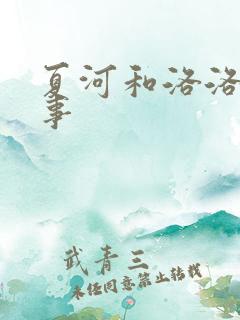 夏河和洛洛
事
武青三
未经同意禁止转载